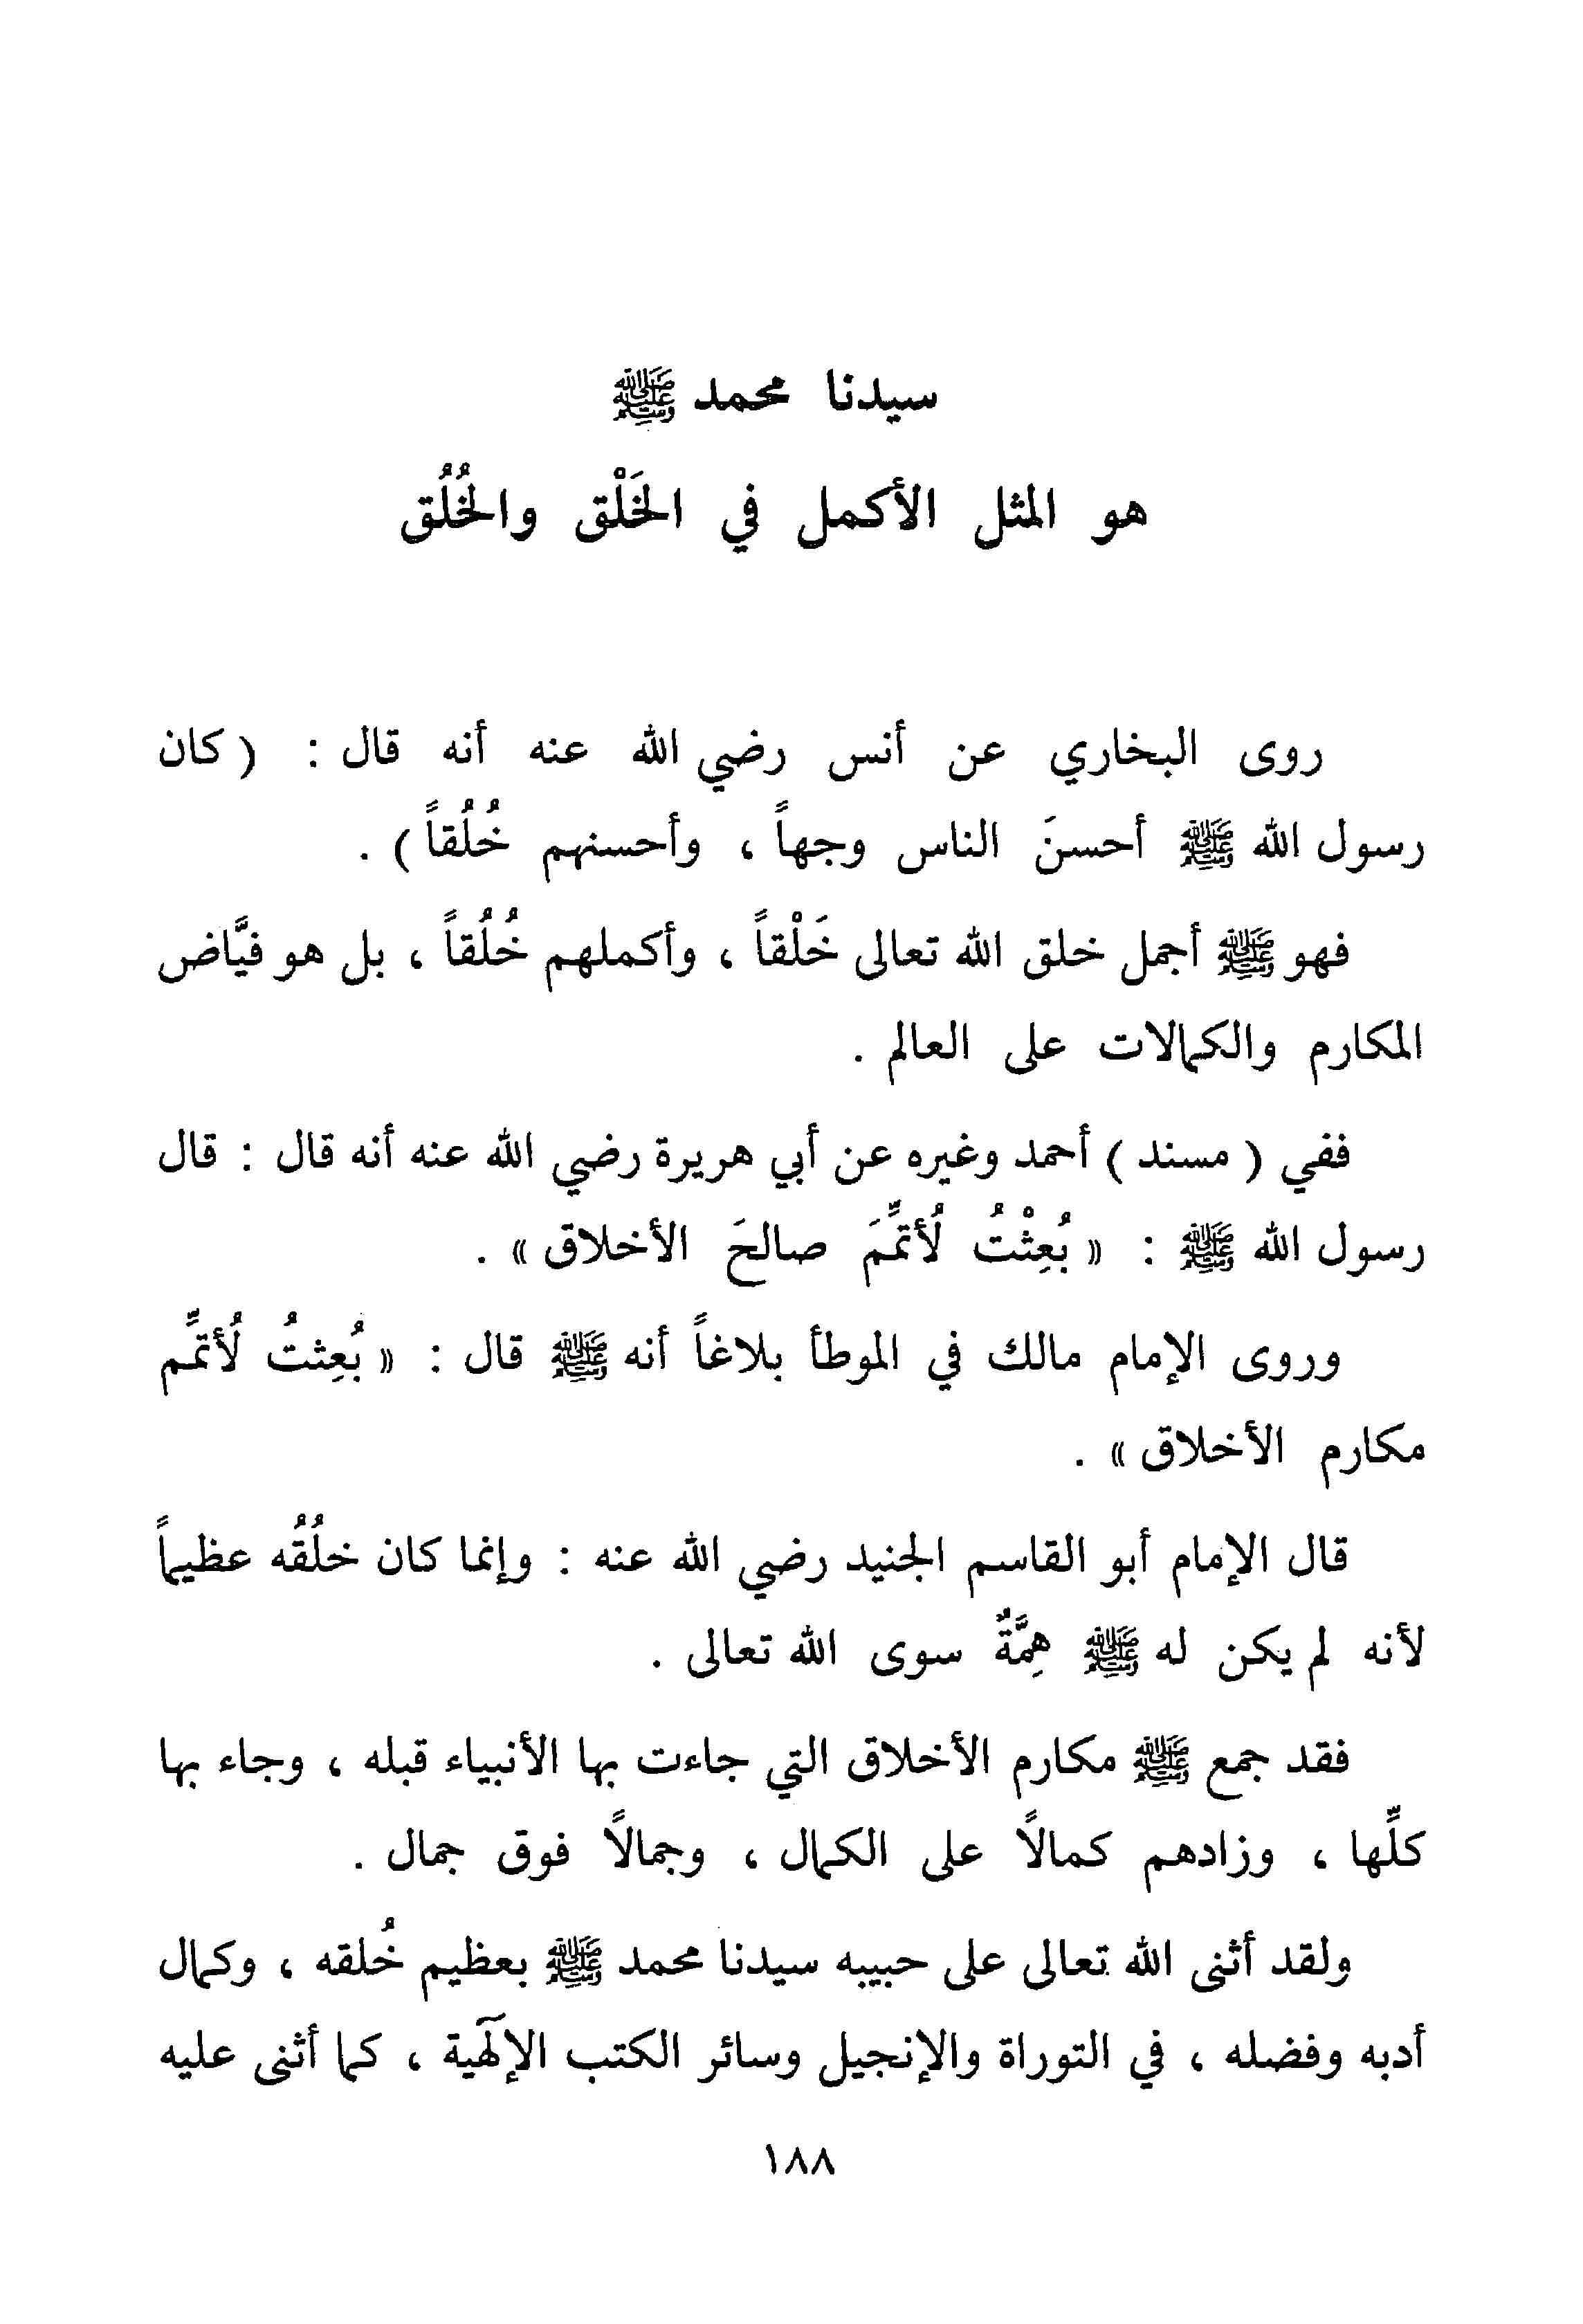 سيدنا محمد ﷺ
هو المثل الأكمل في الخَلْق والخُلُق
روى البخاري عن أنس رضي الله عنه أنه قال : ( كان
رسول الله ﷺ أحسنَ الناس وجهاً ، وأحسنهم خُلُقاً ) .
فهو ﷺ أجمل خلق الله تعالى خَلْقاً ، وأكملهم خُلُقاً ، بل هو فيَّاض
المكارم والكمالات على العالم .
ففي ( مسند ) أحمد وغيره عن أبي هريرة رضي الله عنه أنه قال : قال
رسول الله ﷺ : « بُعِثْتُ لُأتمِّمَ صالحَ الأخلاق » .
وروى الإمام مالك في الموطأ بلاغاً أنه ﷺ قال : « بُعِثتُ لُأتمِّم
مكارم الأخلاق » .
قال الإمام أبو القاسم الجنيد رضي الله عنه : وإنما كان خلُقُه عظيماً
لأنه لم يكن له ﷺ هِمَّةٌ سوى الله تعالى .
فقد جمع ﷺ مكارم الأخلاق التي جاءت بها الأنبياء قبله ، وجاء بها
كلِّها ، وزادهم كمالاً على الكمال ، وجمالاً فوق جمال .
ولقد أثنى الله تعالى على حبيبه سيدنا محمد ﷺ بعظيم خُلقه ، وكمال
أدبه وفضله ، في التوراة والإنجيل وسائر الكتب الإلٓهية ، كما أثنى عليه
١٨٨